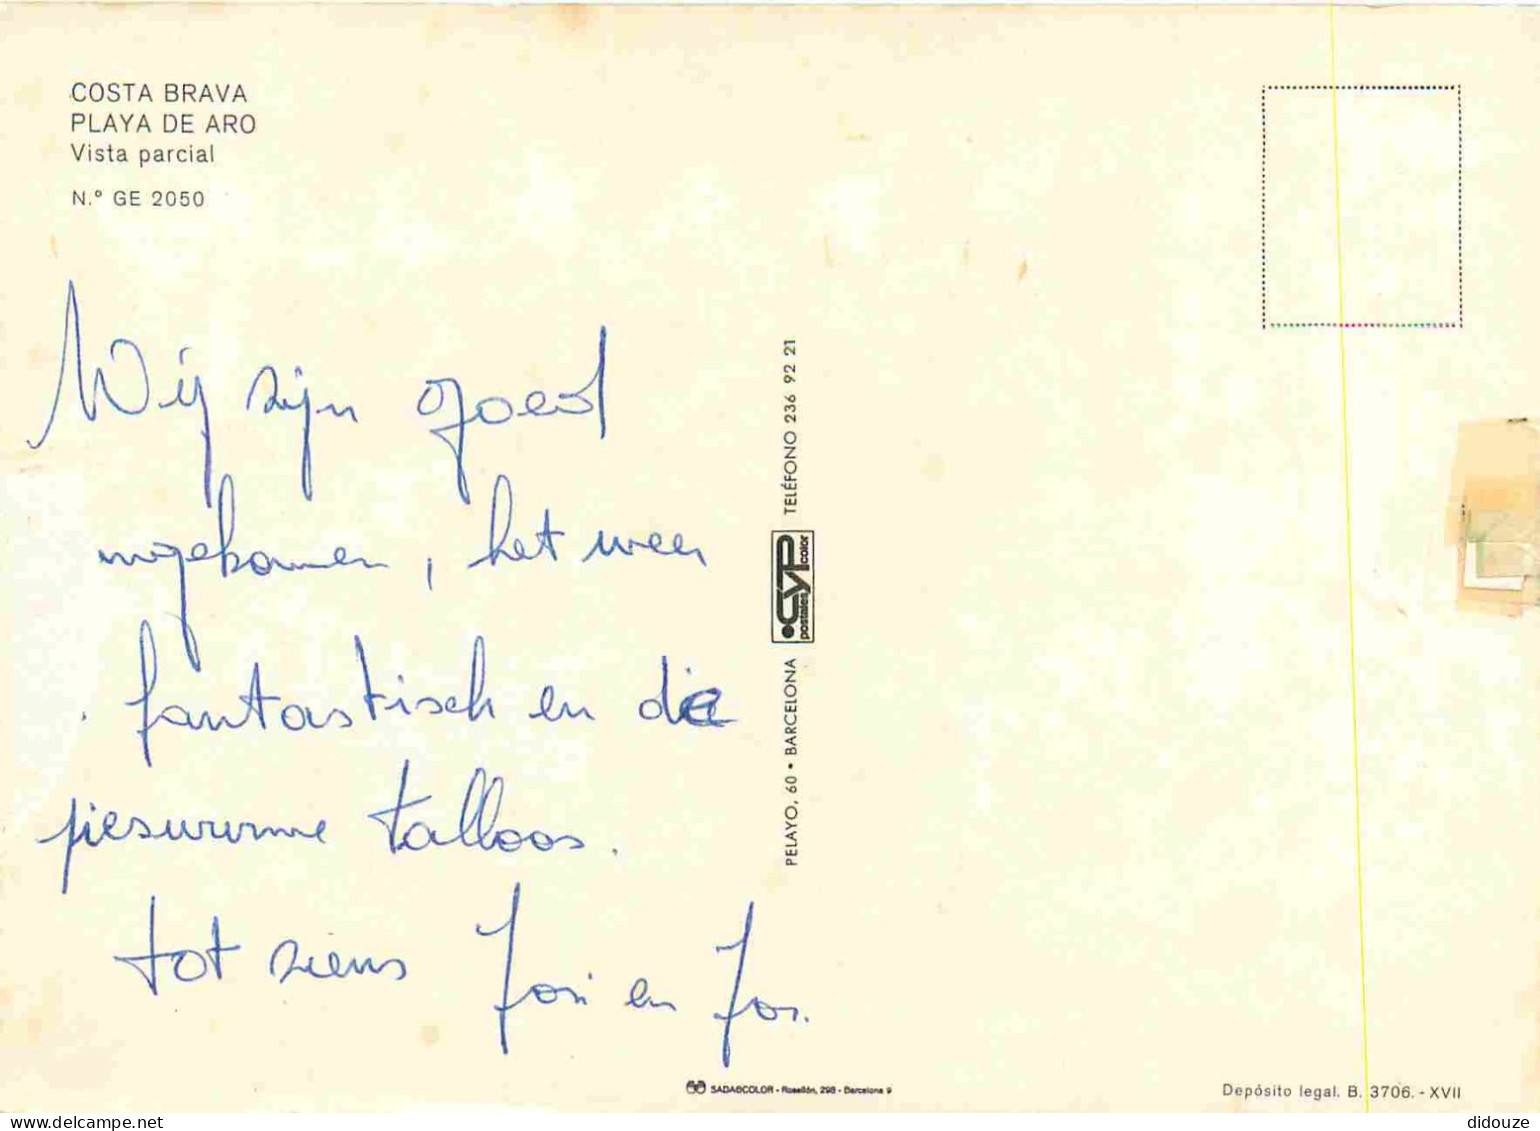 COSTA BRAVA
PLAYA DE ARO
Vista parcial
N.º GE 2050
Wij zijn goed
aangekomen, het weer
fantastisch en die
talloos.
tot ziens Josi en Jos.
PELAYO, 60 • BARCELONA
CYP
postales color
TELÉFONO 236 92 21
SADAGCOLOR - Rosellón, 298 - Barcelona 9
Depósito legal. B. 3706. - XVII
delcampe.net
didouze